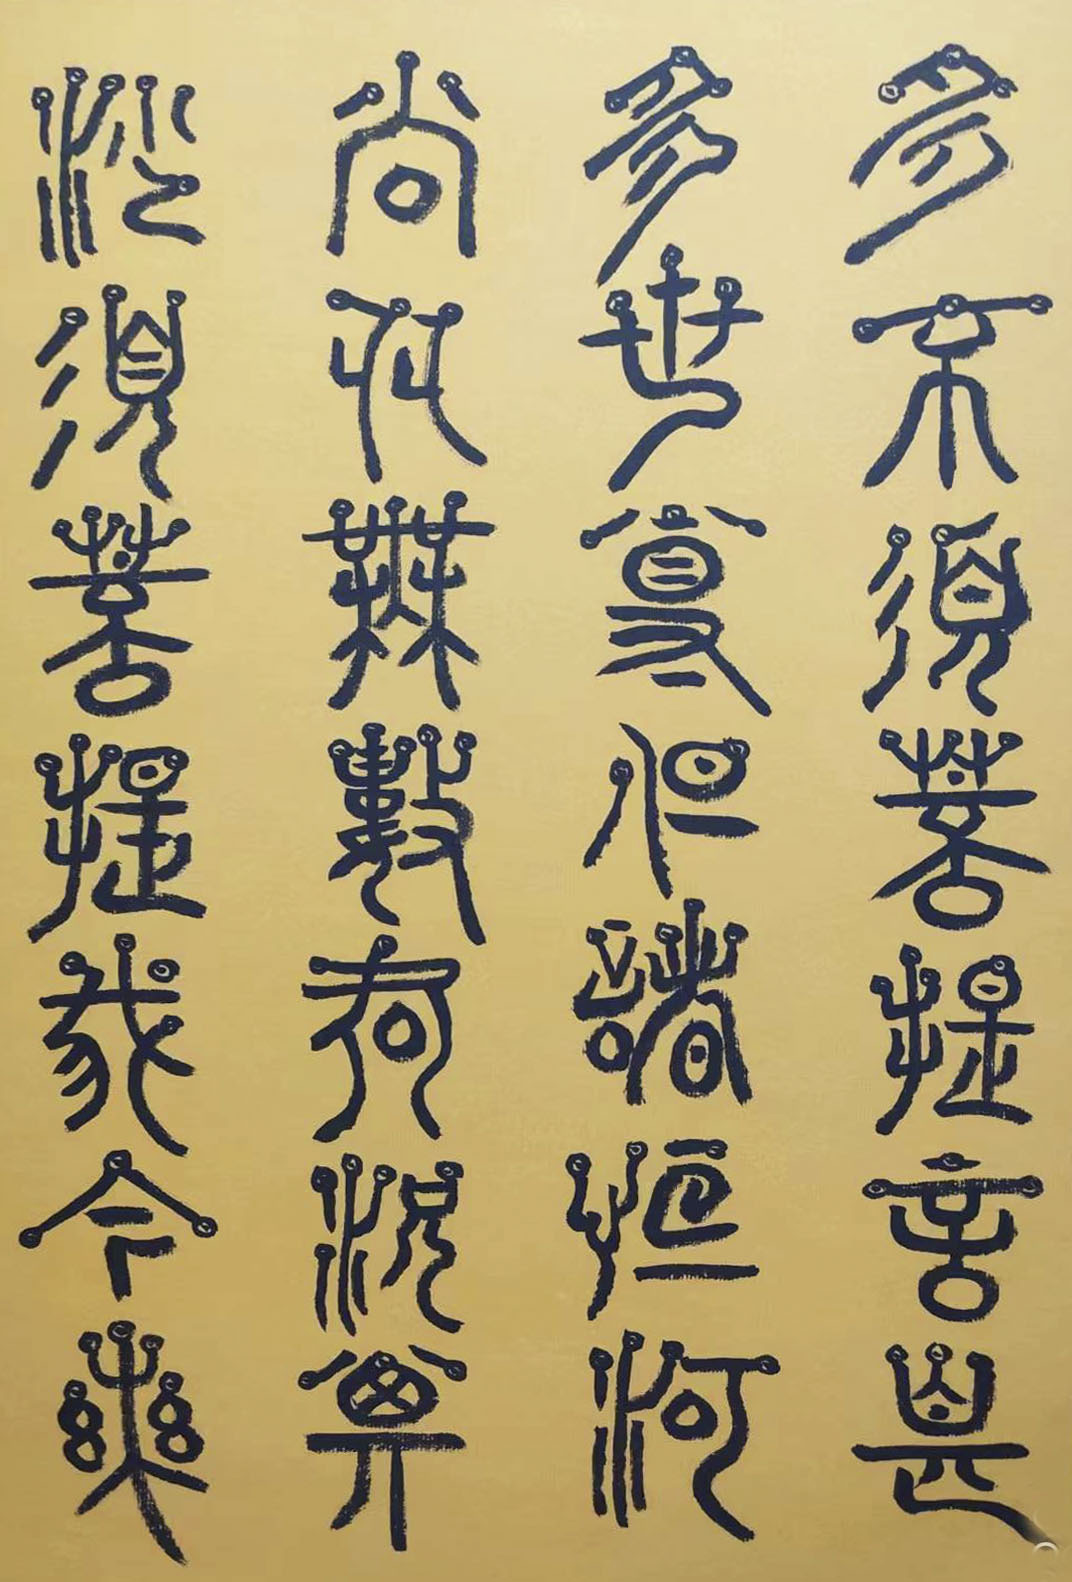 多不須菩提言甚
多世尊但諸恒河
尚多無數何況其
沙須菩提我今實